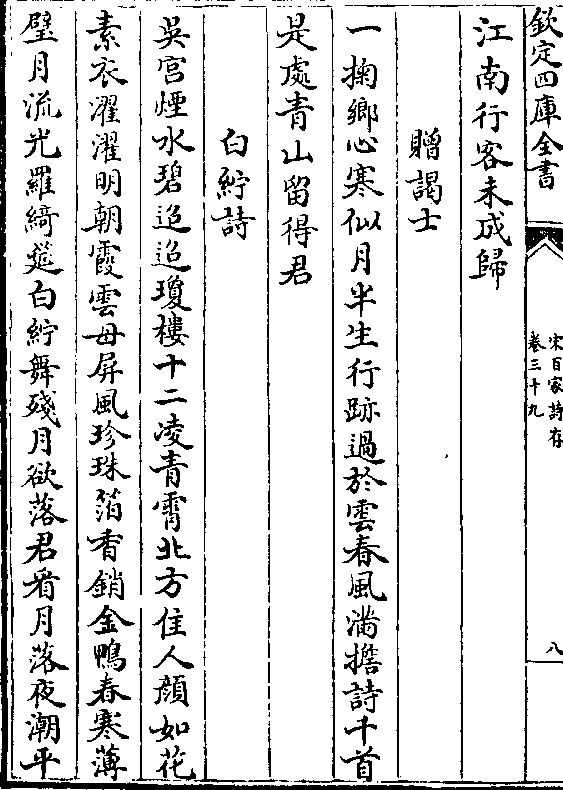 欽定四庫全書
宋百家詩存
卷三十九
八
江南行客未成歸
贈謁士
一掬鄉心寒似月半生行跡過於雲春風滿擔詩千首
是處青山留得君
白紵詩
吳宮煙水碧迢迢瓊樓十二凌青霄北方佳人顔如花
素衣濯濯明朝霞雲母屏風珍珠箔香銷金鴨春寒薄
璧月流光羅綺筵白紵舞殘月欲落君看月落夜潮平